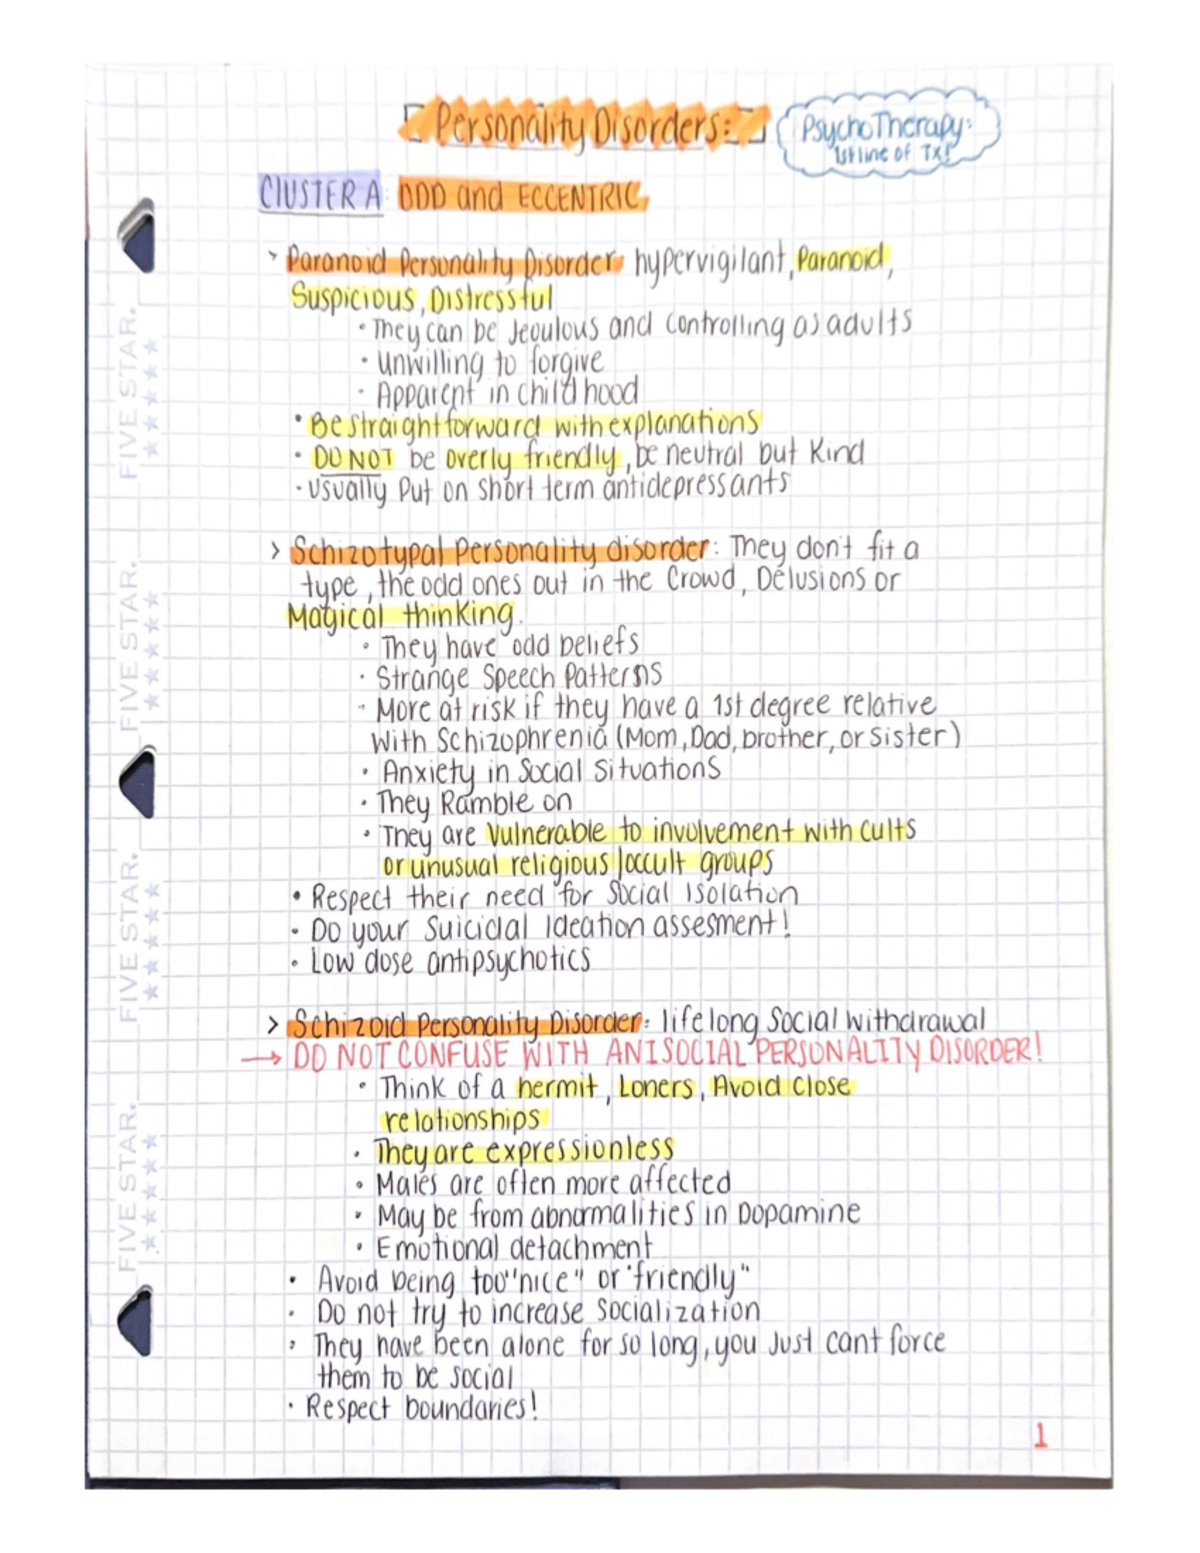 [Personality Disorders:]
PsychoTherapy:
1st line of Tx!
ClUSTER A: ODD and ECCENTRIC,
> Paranoid Personality Disorder: hypervigilant, Paranoid,
Suspicious, Distressful
• They can be Jeoulous and controlling as adults
• Unwilling to forgive
• Apparent in child hood
• Be straight forward with explanations
• DO NOT be overly friendly, be neutral but kind
• Usually Put on short term antidepressants
> Schizotypal Personality disorder: They don't fit a
type, the odd ones out in the Crowd, Delusions or
Magical thinking.
• They have odd beliefs
• Strange Speech Patterns
• More at risk if they have a 1st degree relative
With Schizophrenia (Mom, Dad, brother, or sister)
• Anxiety in Social Situations
• They Ramble on
• They are Vulnerable to involvement with cults
or unusual religious/occult groups
• Respect their need for Social Isolation
• Do your Suicidal Ideation assesment!
• Low dose antipsychotics
> Schizoid Personality Disorder: lifelong Social withdrawal
→ DO NOT CONFUSE WITH ANISOCIAL PERSONALITY DISORDER!
• Think of a hermit, Loners, Avoid close
relationships
• They are expressionless
• Males are often more affected
• May be from abnormalities in Dopamine
• Emotional detachment
• Avoid being too "nice" or "friendly"
• Do not try to increase Socialization
• They have been alone for so long, you Just cant force
them to be social
• Respect boundaries!
1
FIVE STAR.
FIVE STAR.
FIVE STAR.
FIVE STAR.